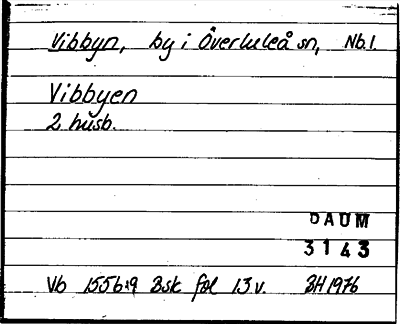 Vibbyn, by i Överluleå sn, Nb.l.
Vibbyen
2 husb.
DAUM
3143
Vb 1556:9 Bsk fol 13 v. BH 1976